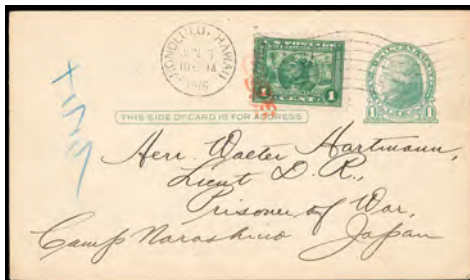 HONOLULU, HAWAII
U.S. POSTAGE
1 CENT 1
1 1
THIS SIDE OF CARD IS FOR ADDRESS
Herr. Walter Hartmann,
Lieut D. R.,
Prisoner of War,
Camp Narashino Japan